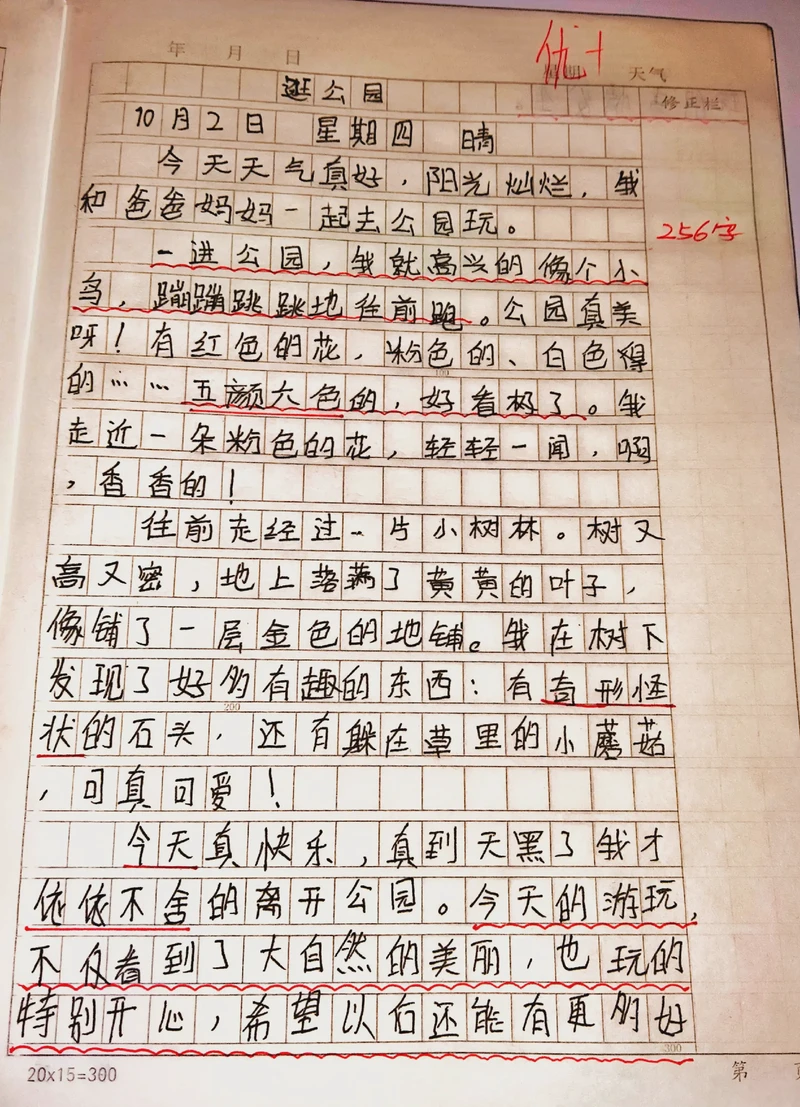 优+
年 月 日 星期 天气
逛公园
修正栏
10月2日 星期四 晴
今天天气真好，阳光灿烂，我
和爸爸妈妈一起去公园玩。
256字
一进公园，我就高兴的像个小
鸟，蹦蹦跳跳地往前跑。公园真美
呀！有红色的花，粉色的、白色得
100
的……五颜六色的，好看极了。我
走近一朵粉色的花，轻轻一闻，啊
，香香的！
往前走经过一片小树林。树又
高又密，地上落满了黄黄的叶子，
像铺了一层金色的地铺。我在树下
发现了好多有趣的东西：有奇形怪
200
状的石头，还有躲在草里的小蘑菇
，可真可爱！
今天真快乐，真到天黑了我才
依依不舍的离开公园。今天的游玩，
不仅看到了大自然的美丽，也玩的
特别开心，希望以后还能有更多好
300
20x15=300
第 页